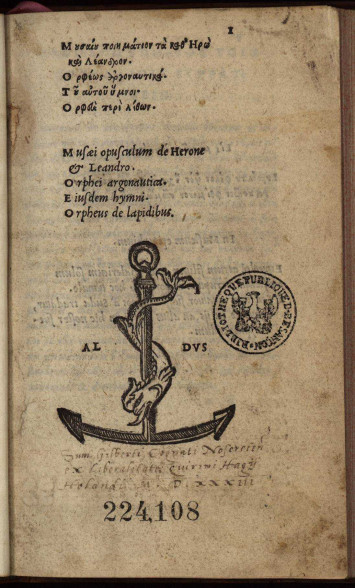 1
Μουσαίου ποιημάτιον τὰ καθ' Ἡρὼ
καὶ Λέανδρον.
Ὀρφέως ἀργοναυτικά.
Τοῦ αὐτοῦ ὕμνοι.
Ὀρφεὺς περὶ λίθων.
Musæi opusculum de Herone
& Leandro.
Orphei argonautica.
Eiusdem hymni.
Orpheus de lapidibus.
AL DVS
BIBLIOTHEQUE PUBLIQUE DE BESANÇON
Sum Gilberti Cognati Nozereni
ex liberalitate
M. D. XXXIII
224,108